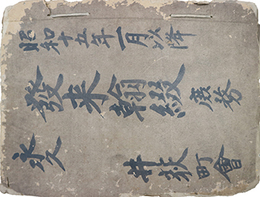 昭和十五年一月以降
發来翰綴 庶務
永久
井荻町會